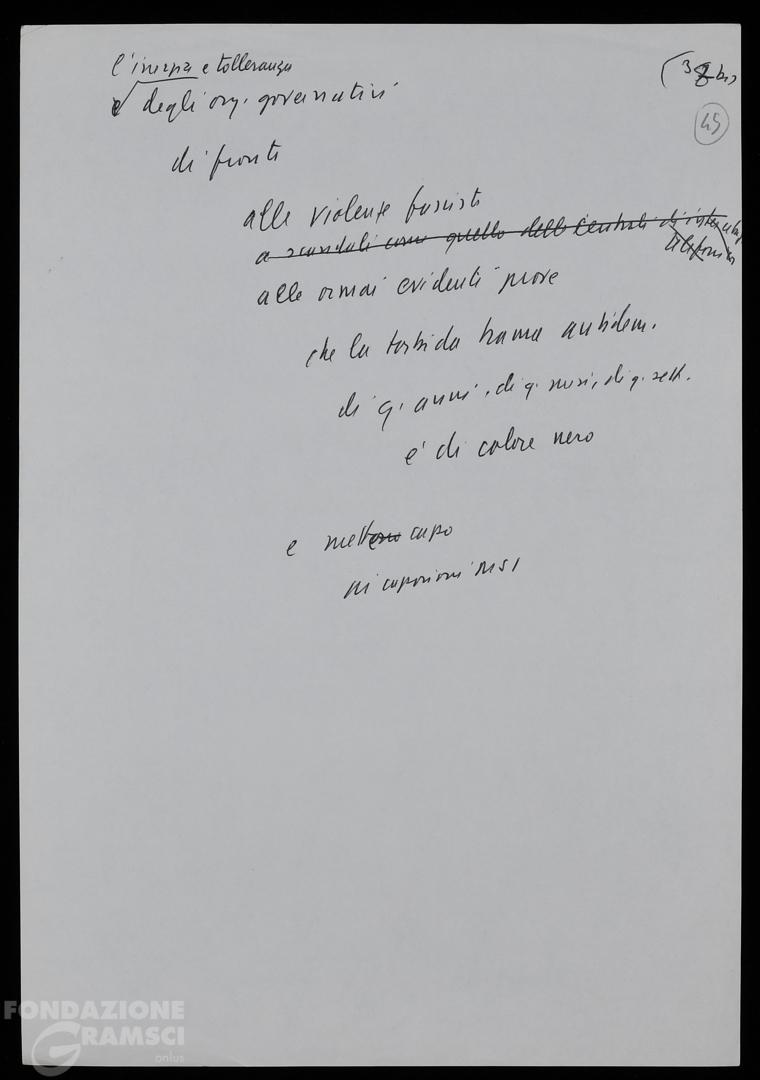 l'inerzia e tolleranza
(38 bis
e degli org. governativi
45
di fronte
alle violenze fasciste
a scandali come quello delle Centrali di intercettaz
telefoniche
alle ormai evidenti prove
che la torbida trama antidem.
di q. anni, di q. mesi, di q. sett.
è di colore nero
e mettono capo
ai caporioni MSI
FONDAZIONE
GRAMSCI
onlus